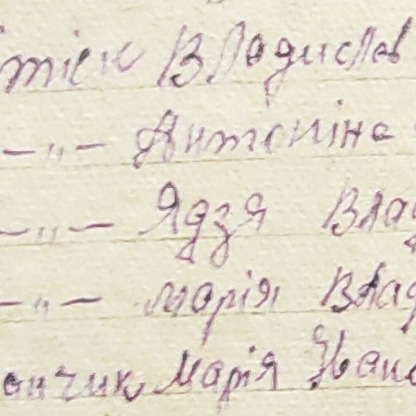 Владислав
—„— Антоніна
—„— Ядзя Влад
—„— Марія Влад
анчик Марія Івано